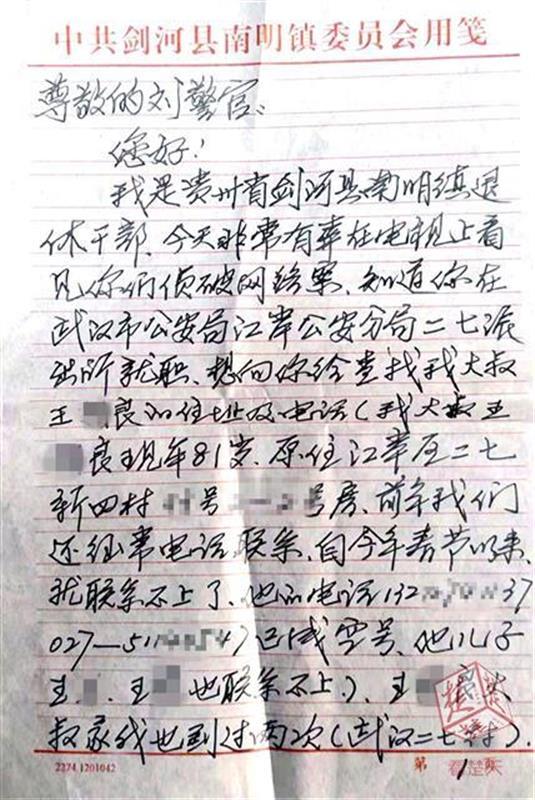 中共剑河县南明镇委员会用笺
尊敬的刘警官：
您好！
我是贵州省剑河县南明镇退
休干部、今天非常有幸在电视上看
见你们侦破网络案、知道你在
武汉市公安局江岸公安分局二七派
出所就职、想向你给查找我大叔
王良的住址及电话（我大叔王
良现年81岁、原住江岸区二七
新四村号号房、前年我们
还经常电话联系、自今年春节以来
就联系不上了、他的电话13237
027—5147已成空号、他儿子
王、王也联系不上）、王良大
叔家我也到过两次（武汉二七村）.
2274.1201042
第1页
看楚天